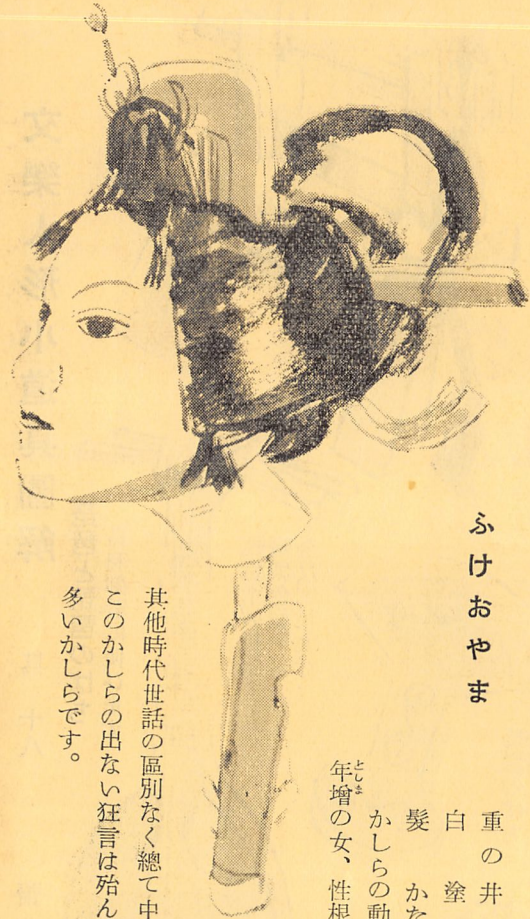 ふけおやま
重の井
白塗
髪　かた
かしらの動
年增の女、性根
としま
其他時代世話の區別なく總て中
このかしらの出ない狂言は殆ん
多いかしらです。